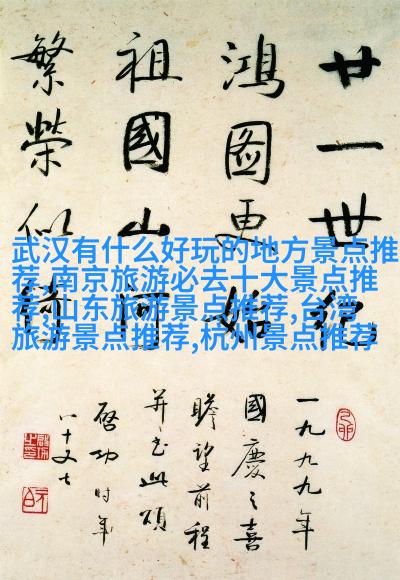 武汉有什么好玩的地方景点推
荐,南京旅游必去十大景点推
荐,山东旅游景点推荐,台湾
旅游景点推荐,杭州景点推荐
廿一世紀
鴻圖更始
祖國山河
繁榮似
一九九九年
國慶之喜
瞻望前程
并書此頌
啓功時年
八十又七